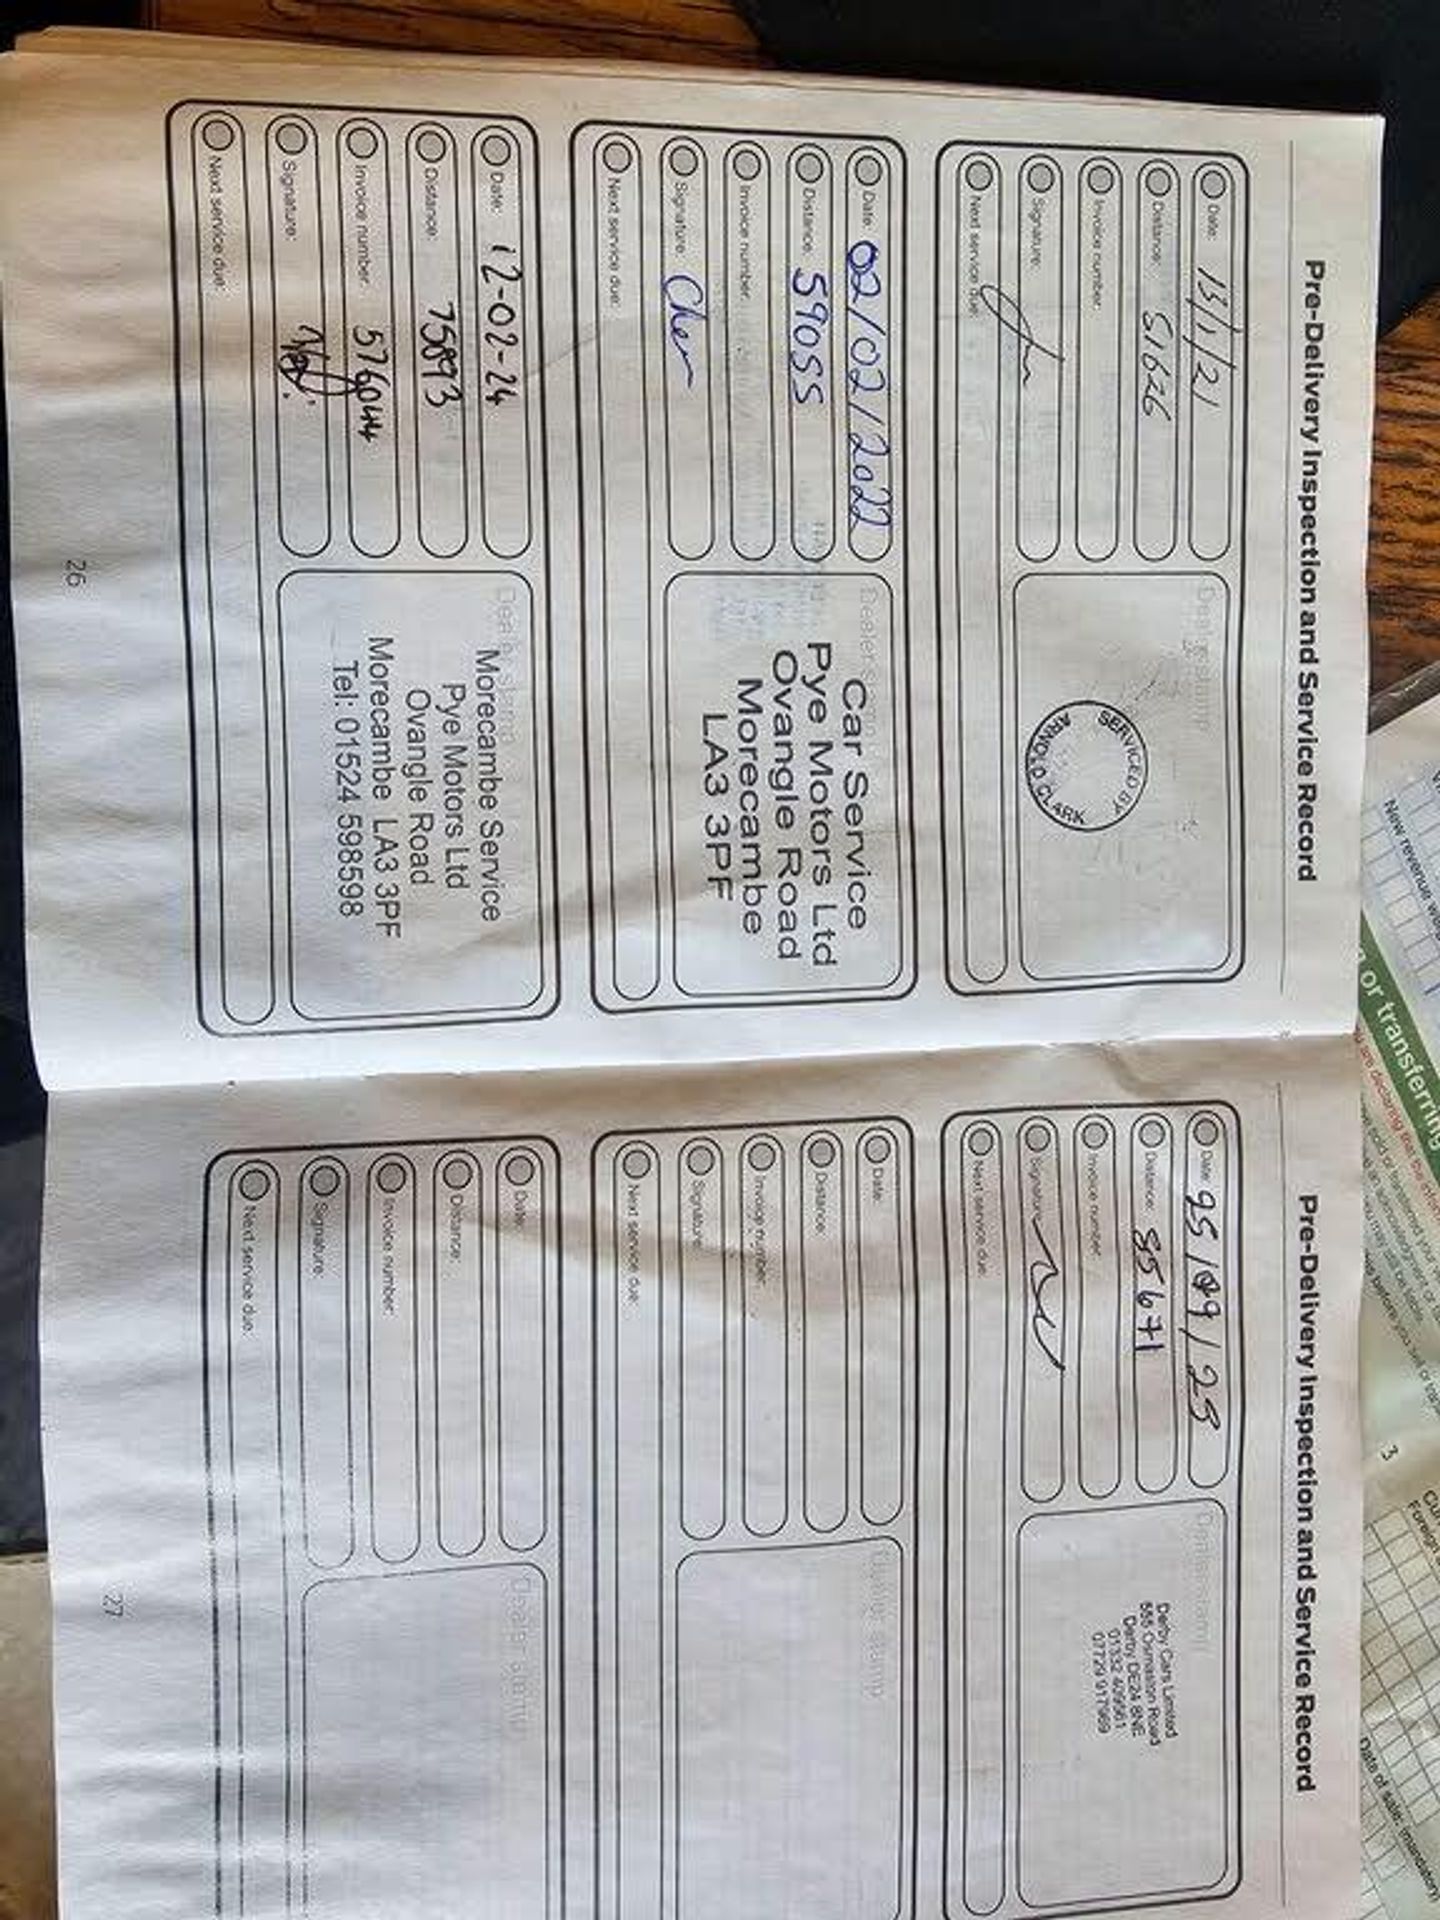 Pre-Delivery Inspection and Service Record
Date: 13/1/21
Distance: 51626
Invoice number:
Signature:
Next service due:
Dealer stamp
SERVICED BY
ARNOLD CLARK
Date: 02/02/2022
Distance: 59055
Invoice number:
Signature: Cher
Next service due:
Dealer
Car Service
Pye Motors Ltd
Ovangle Road
Morecambe
LA3 3PF
Date: 12-02-24
Distance: 75893
Invoice number: 576044
Signature:
Next service due:
Dealer stamp
Morecambe Service
Pye Motors Ltd
Ovangle Road
Morecambe LA3 3PF
Tel: 01524 598598
26
Pre-Delivery Inspection and Service Record
Date: /09/25
Distance: 85671
Invoice number:
Signature:
Next service due:
Dealer stamp
Derby Cars Limited
555 Osmaston Road
Derby DE24 8NE
01332 409561
07729 917969
Date:
Distance:
Invoice number:
Signature:
Next service due:
Dealer stamp
Date:
Distance:
Invoice number:
Signature:
Next service due:
Dealer stamp
27
or transferring
3
Date of sale: (mandatory)